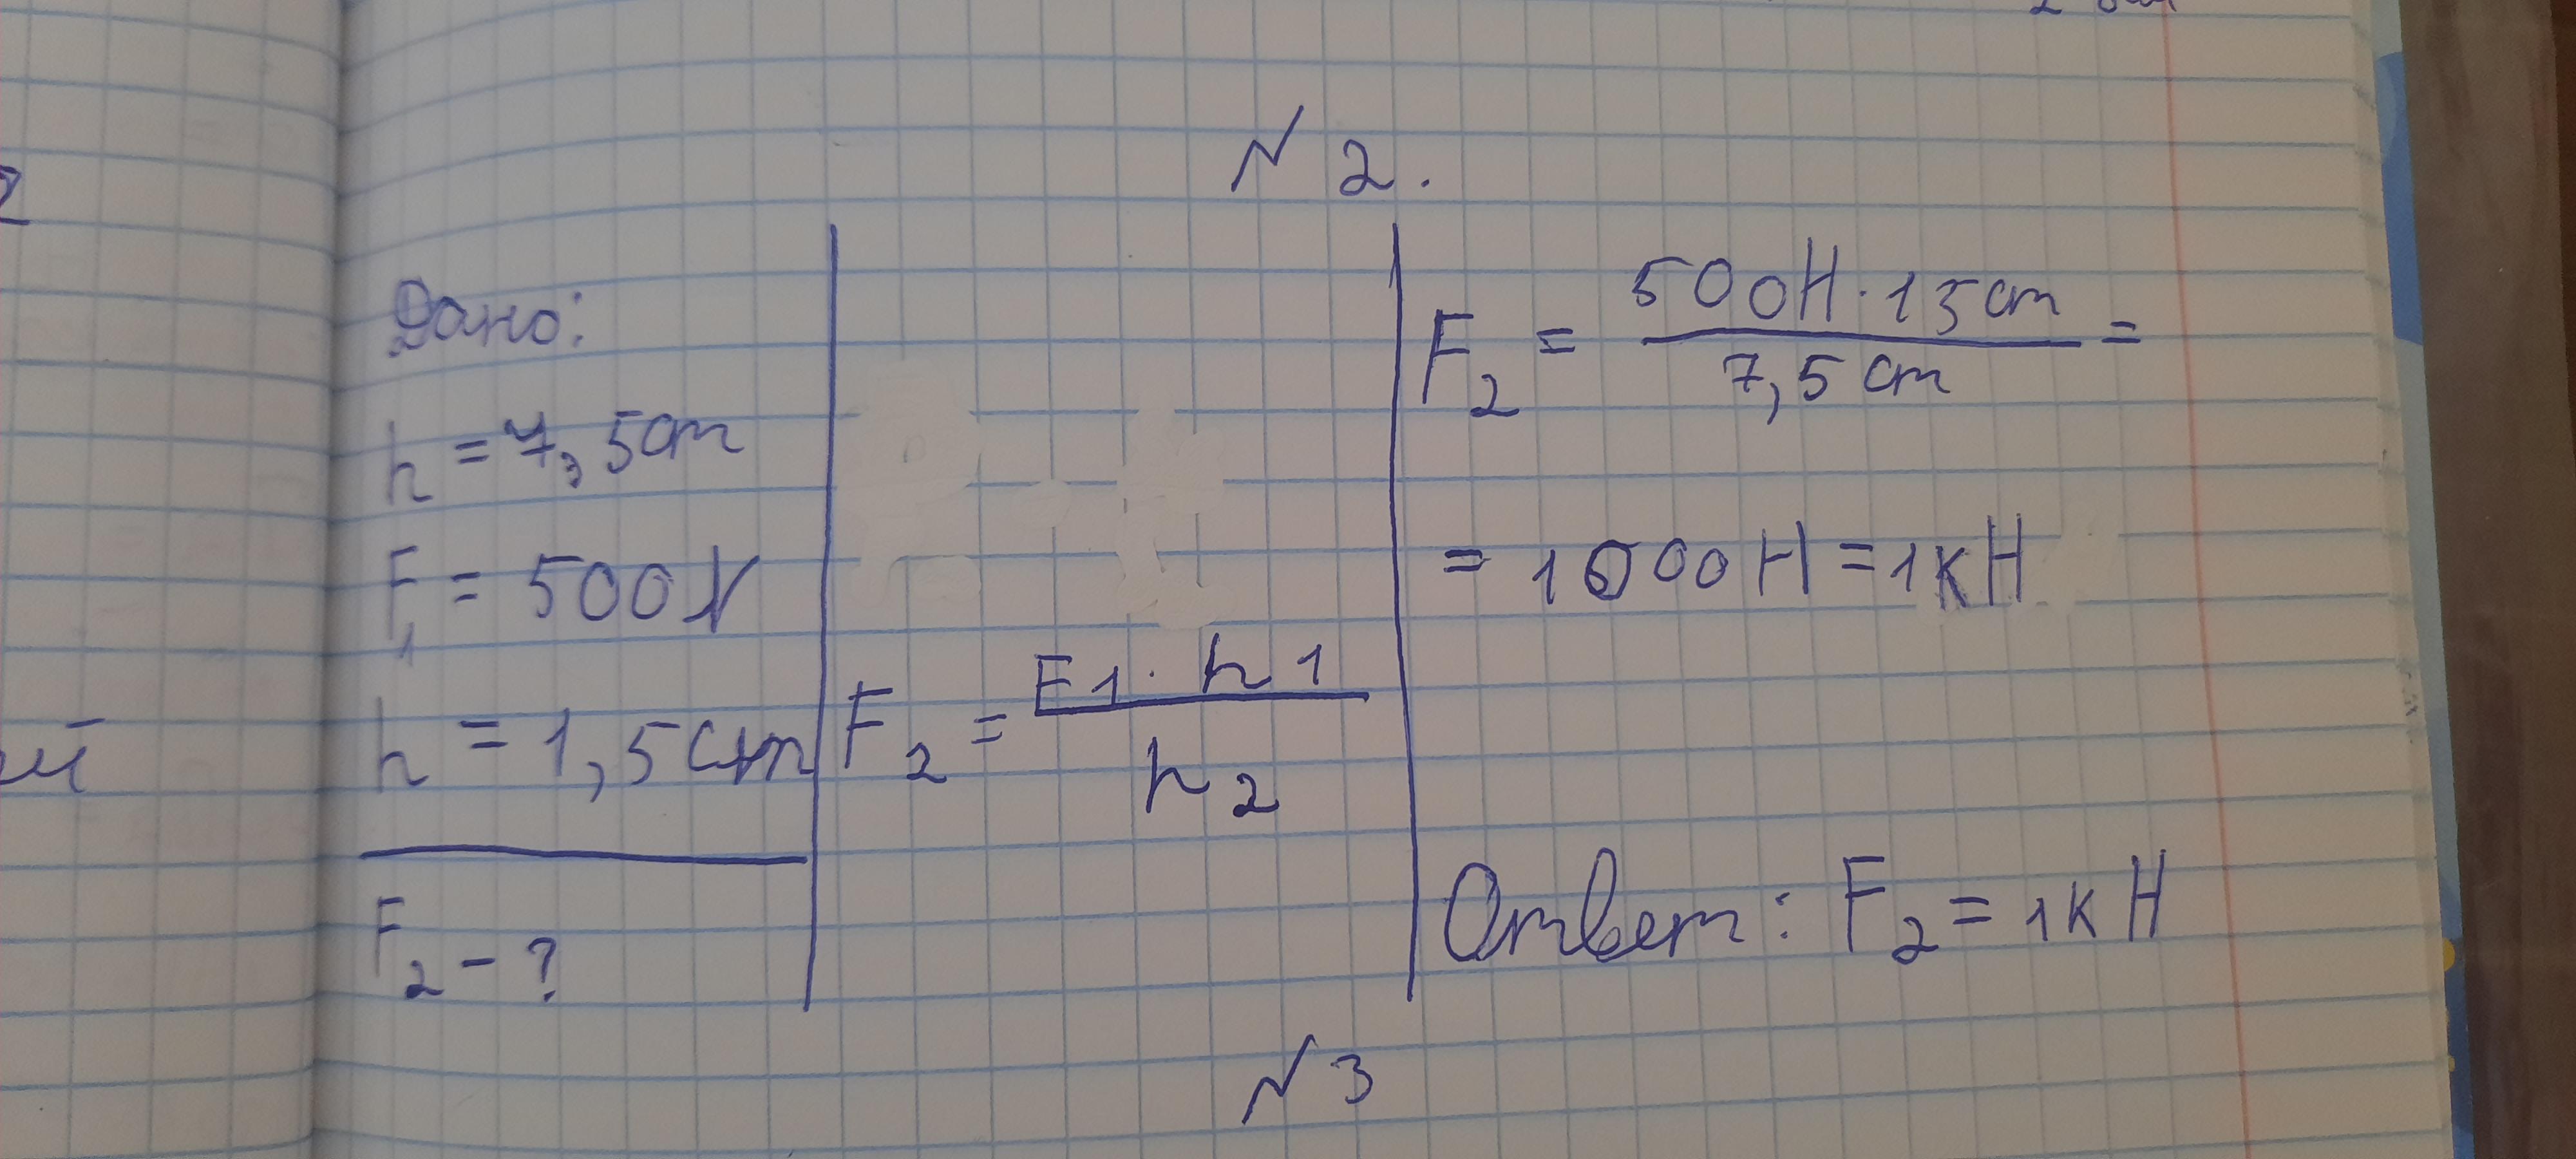 № 2.
Дано:
h = 7,5 cm
F1 = 500 N
h = 1,5 cm
F2 - ?
F2 = F1 · h1 / h2
F2 = 500 H · 15 cm / 7,5 cm =
= 1000 H = 1 кН
Ответ: F2 = 1 кН
№ 3